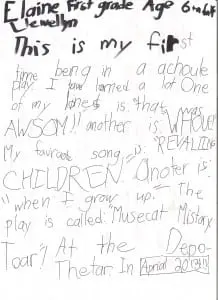 Elaine First grade Age 6 and half
Llewellyn
This is my first
time being in a achoule
play. I have learned a lot One
of my lines is: "that was
AWSOM!! another is: "WHOUE!
My favroad song is: "REVALTING
CHILDREN" Anoter is:
"when I grow up." The
play is called: "Musecat Mistary
Toar" At the Depo-
Thetar. In Aprial 2017